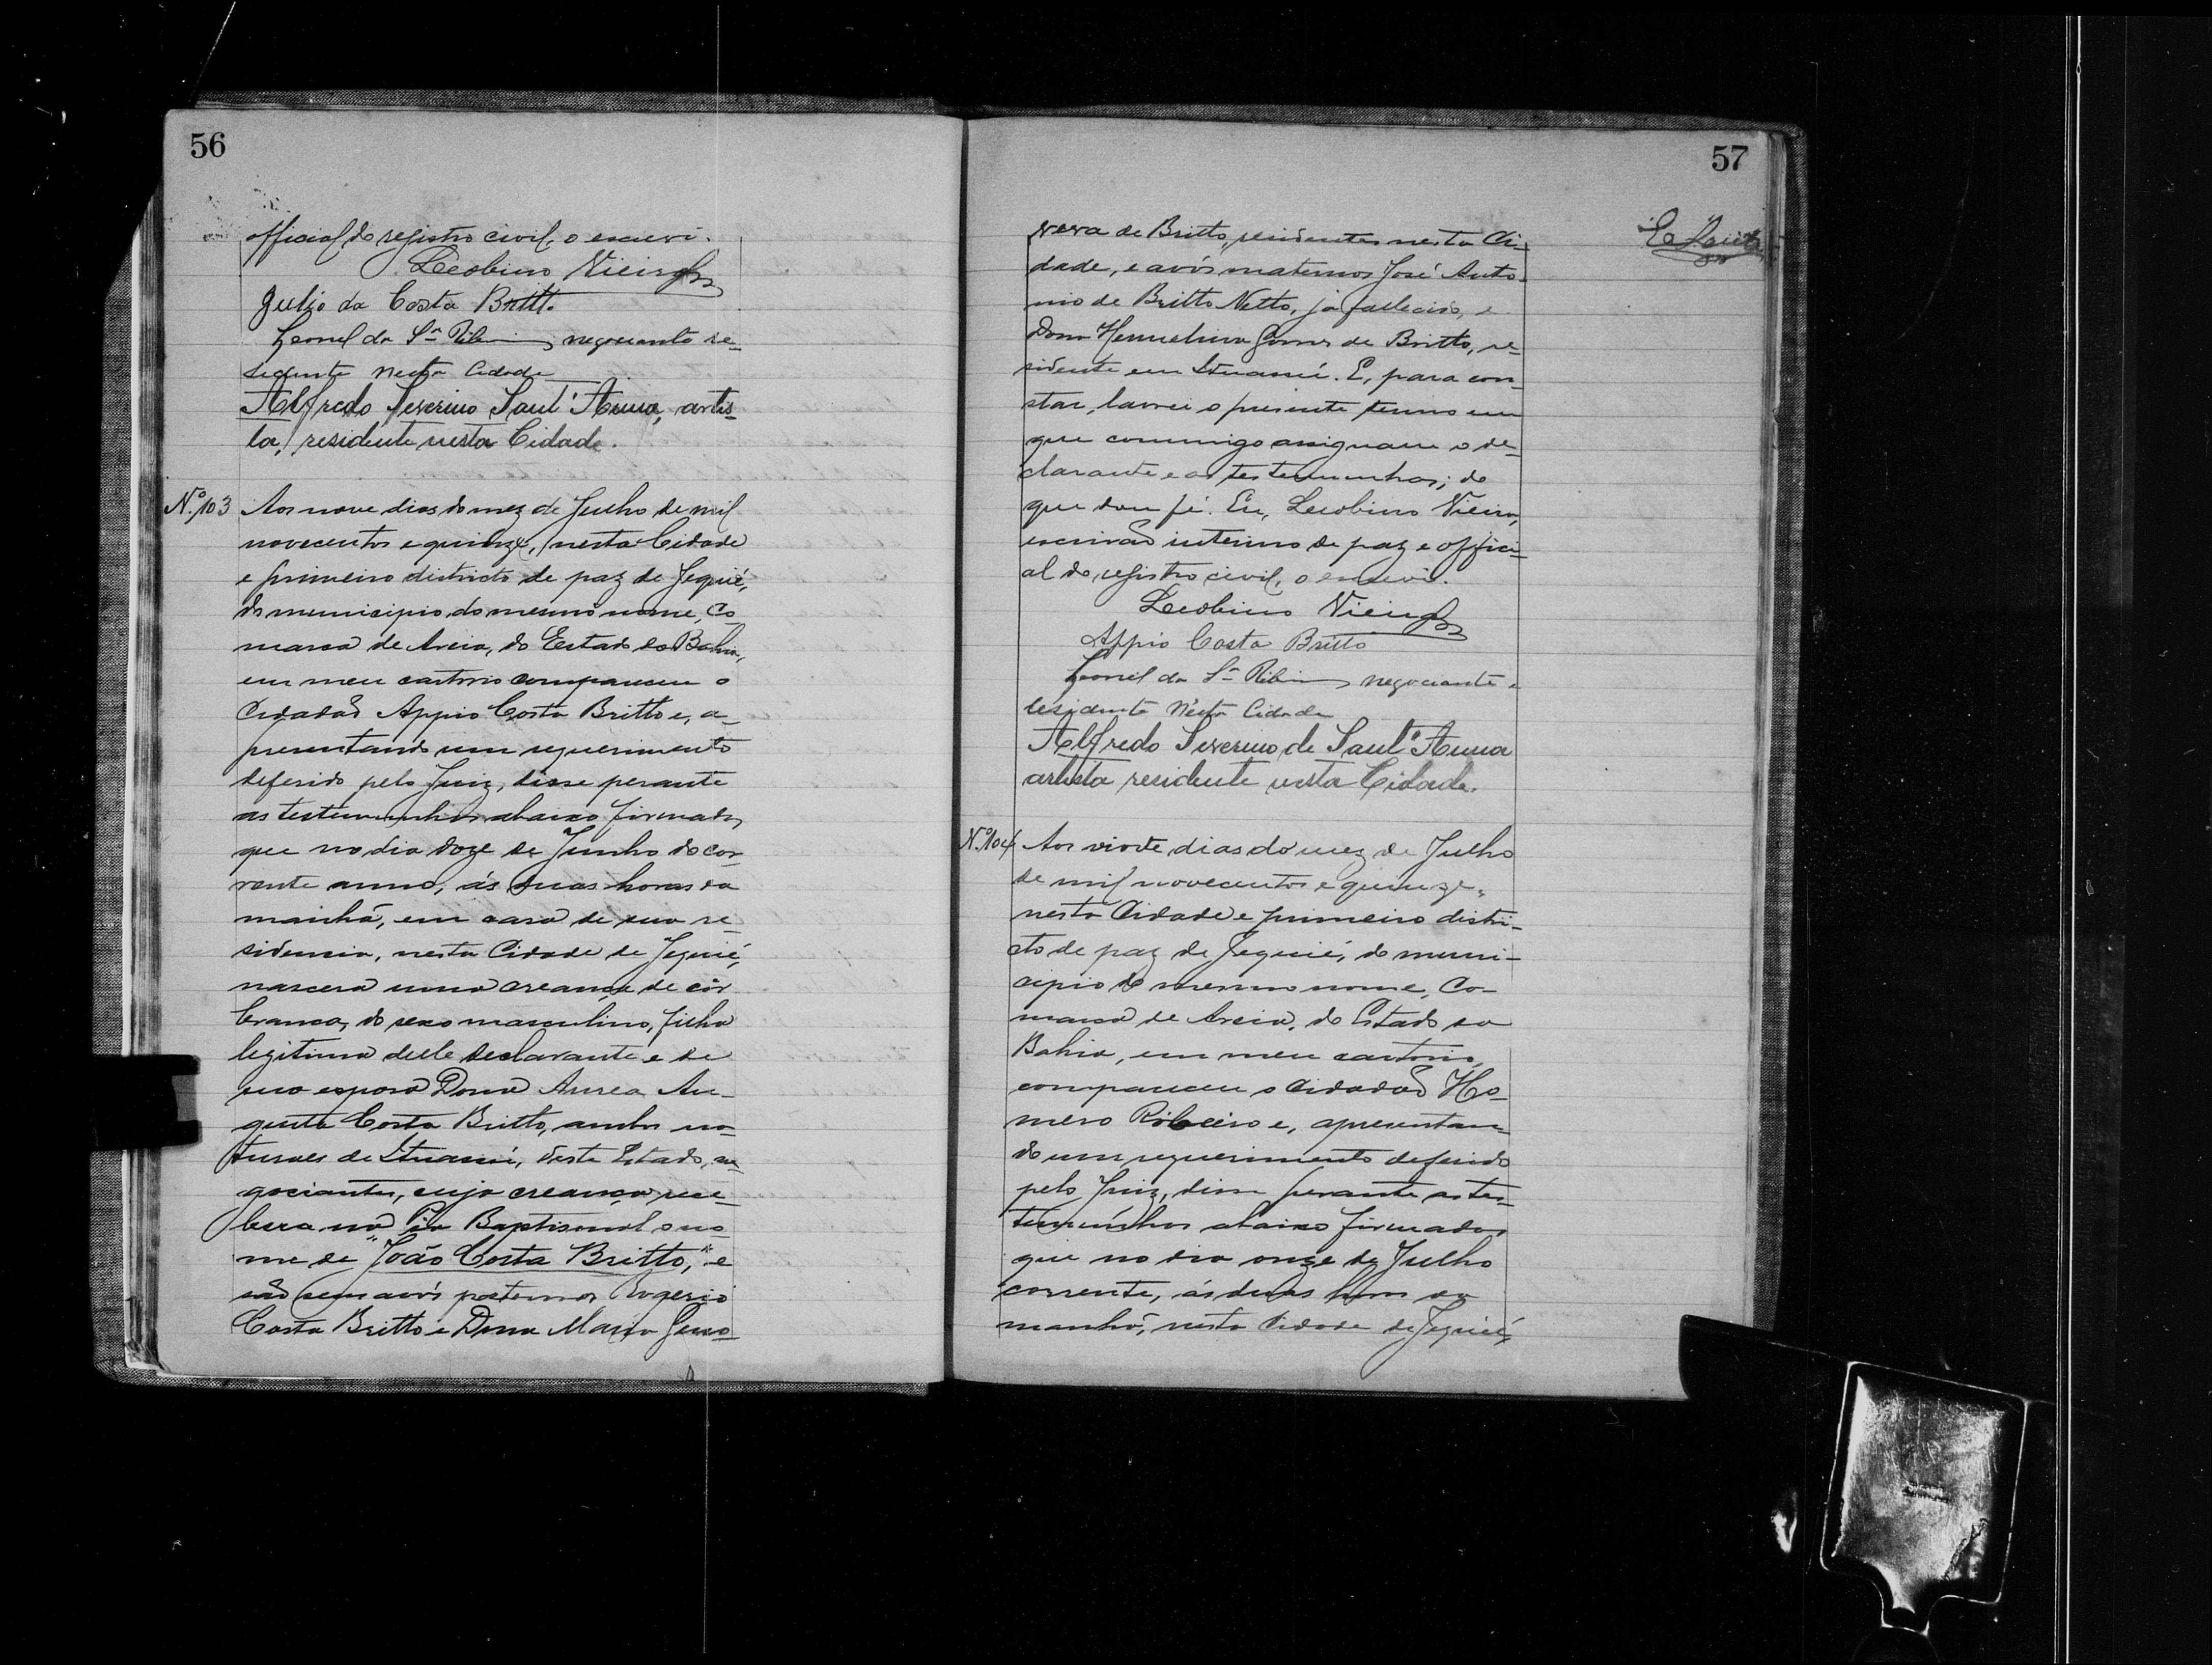 56
official do registro civil, o escrevi.
Leobino Vieira
Julio da Costa Britto
Leonel da Sª Ribeiro negociante re-
sedente nesta Cidade
Alfredo Severino Sant'Anna, artis-
ta, residente nesta Cidade.
Nº 103 Aos nove dias do mez de Julho de mil
novecentos e quinze, nesta Cidade
e primeiro districto de paz de Jequié,
do municipio do mesmo nome, Co
marca de Areia, do Estado da Bahia,
em meu cartorio compareceu o
Cidadão Appio Costa Britto e, a-
presentando um requerimento
deferido pelo Juiz, disse perante
as testemunhas abaixo firmadas
que no dia doze de Junho do cor-
rente anno, ás duas horas da
manhã, em casa de sua re-
sidencia, nesta Cidade de Jequié,
nascera uma creança de côr
branca, do sexo masculino, filha
legitima delle declarante e de
sua esposa Dona Aurea Au-
gusta Costa Britto, ambos na-
turaes de Ituassú, deste Estado, ne-
gociantes, cuja creança rece-
bera na Pia Baptismal o no-
me de "João Costa Britto," e
são seus avós paternos Rogerio
Costa Britto e Dona Maria Geno-
57
veva de Britto, residentes nesta Ci-
dade, e avós maternos José Anto-
nio de Britto Netto, já fallecido, e
Dona Hermelina Gomes de Britto, re-
sidente em Ituassú. E, para con-
star, lavrei o presente termo em
que commigo assignam o de-
clarante e as testemunhas; do
que dou fé. Eu, Leobino Vieira,
escrivão interino de paz e offici-
al do registro civil, o escrevi.
Leobino Vieira
Appio Costa Britto
Leonel da Sª Ribeiro negociante e
residente nesta Cidade
Alfredo Severino de Sant'Anna
artista residente nesta Cidade.
Nº 104 Aos vinte dias do mez de Julho
de mil novecentos e quinze,
nesta Cidade e primeiro distri-
cto de paz de Jequié, do muni-
cipio do mesmo nome, Co-
marca de Areia, do Estado da
Bahia, em meu cartorio,
compareceu o Cidadão Ho-
mero Ribeiro e, apresentan-
do um requerimento deferido
pelo Juiz, disse perante as tes-
temunhas abaixo firmadas
que no dia onze de Julho
corrente, ás duas horas da
manhã, nesta Cidade de Jequié,